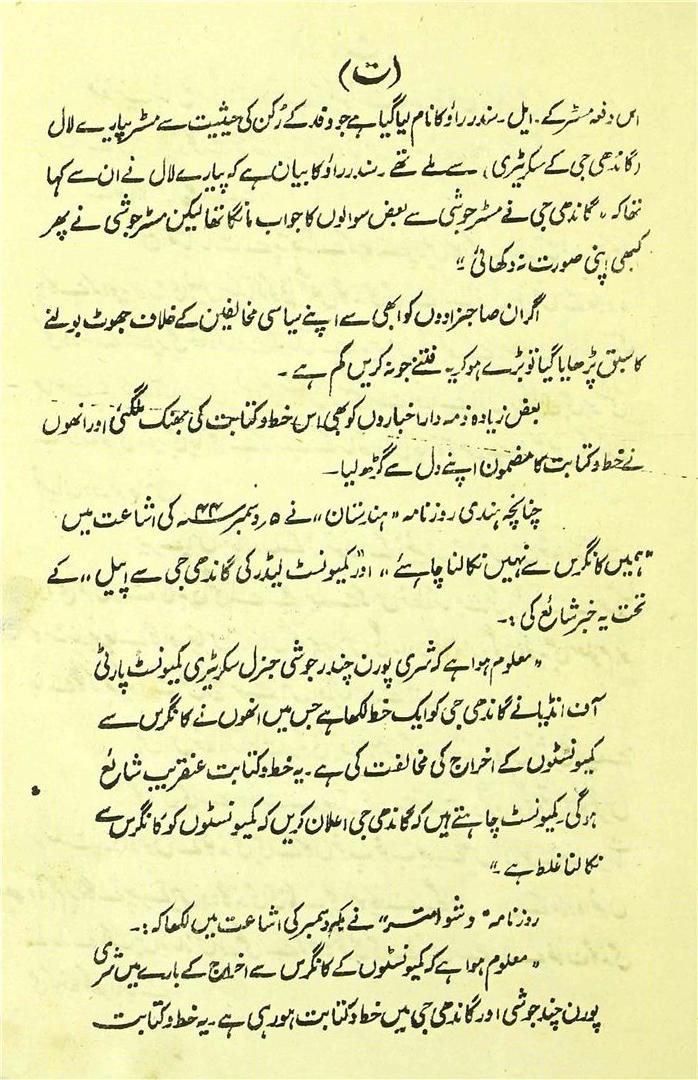 (ت)
اس دفعہ مسٹر کے۔ ایل۔ سندر راؤ کا نام لیا گیا ہے جو وفد کے رُکن کی حیثیت سے مسٹر پیارے لال
(گاندھی جی کے سکریٹری) سے ملے تھے۔ سندر راؤ کا بیان ہے کہ پیارے لال نے ان سے کہا
تھا کہ "گاندھی جی نے مسٹر جوشی سے بعض سوالوں کا جواب مانگا تھا لیکن مسٹر جوشی نے پھر
کبھی اپنی صورت نہ دکھائی"
اگر ان صاحبزادوں کو ابھی سے اپنے سیاسی مخالفین کے خلاف جھوٹ بولنے
کا سبق پڑھایا گیا تو بڑے ہو کر یہ فتنے جو نہ کریں کم ہے۔
بعض زیادہ ذمہ دار اخباروں کو بھی اس خط و کتابت کی بھنک مل گئی اور انھوں
نے خط و کتابت کا مضمون اپنے دل سے گڑھ لیا۔
چنانچہ ہندی روزنامہ "ہندستان" نے ۵ر دسمبر ۴۴ء کی اشاعت میں
"ہمیں کانگرس سے نہیں نکالنا چاہئے" اور "کمیونسٹ لیڈر کی گاندھی جی سے اپیل" کے
تحت یہ خبر شائع کی:۔
"معلوم ہوا ہے کہ شری پورن چندر جوشی جنرل سکریٹری کمیونسٹ پارٹی
آف انڈیا نے گاندھی جی کو ایک خط لکھا ہے جس میں انھوں نے کانگرس سے
کمیونسٹوں کے اخراج کی مخالفت کی ہے۔ یہ خط و کتابت عنقریب شائع
ہوگی۔ کمیونسٹ چاہتے ہیں کہ گاندھی جی اعلان کریں کہ کمیونسٹوں کو کانگرس سے
نکالنا غلط ہے۔"
روزنامہ "وشوامتر" نے یکم دسمبر کی اشاعت میں لکھا کہ:۔
"معلوم ہوا ہے کہ کمیونسٹوں کے کانگرس سے اخراج کے بارے میں شری
پورن چند جوشی اور گاندھی جی میں خط و کتابت ہو رہی ہے۔ یہ خط و کتابت